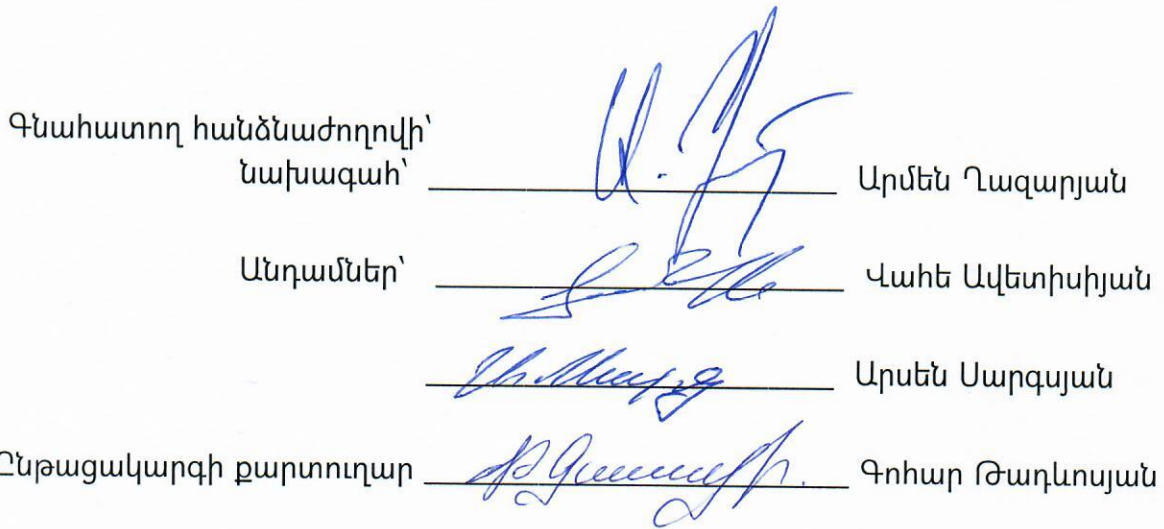 Գնահատող հանձնաժողովի՝
նախագահ՝ Արմեն Ղազարյան
Անդամներ՝ Վահե Ավետիսիյան
Արսեն Սարգսյան
Ընթացակարգի քարտուղար Գոհար Թադևոսյան